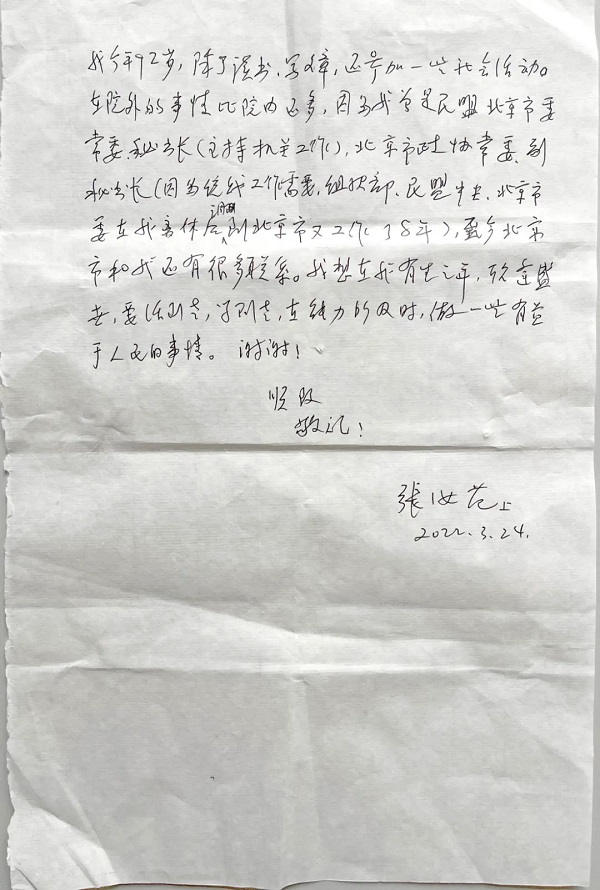 我今年92岁，除了读书、写文章，还参加一些社会活动。
在院外的事情比院内还多，因为我曾是民盟北京市委
常委、秘书长（主持机关工作），北京市政协常委、副
秘书长（因为统战工作需要，组织部、民盟中央、北京市
委在我离休后调到北京市又工作了8年），至今北京
市和我还有很多联系。我想在我有生之年，欣逢盛
世，要活到老，学到老，在能力所及时，做一些有益
于人民的事情。谢谢！
顺致
敬礼！
張汝范上
2022.3.24.